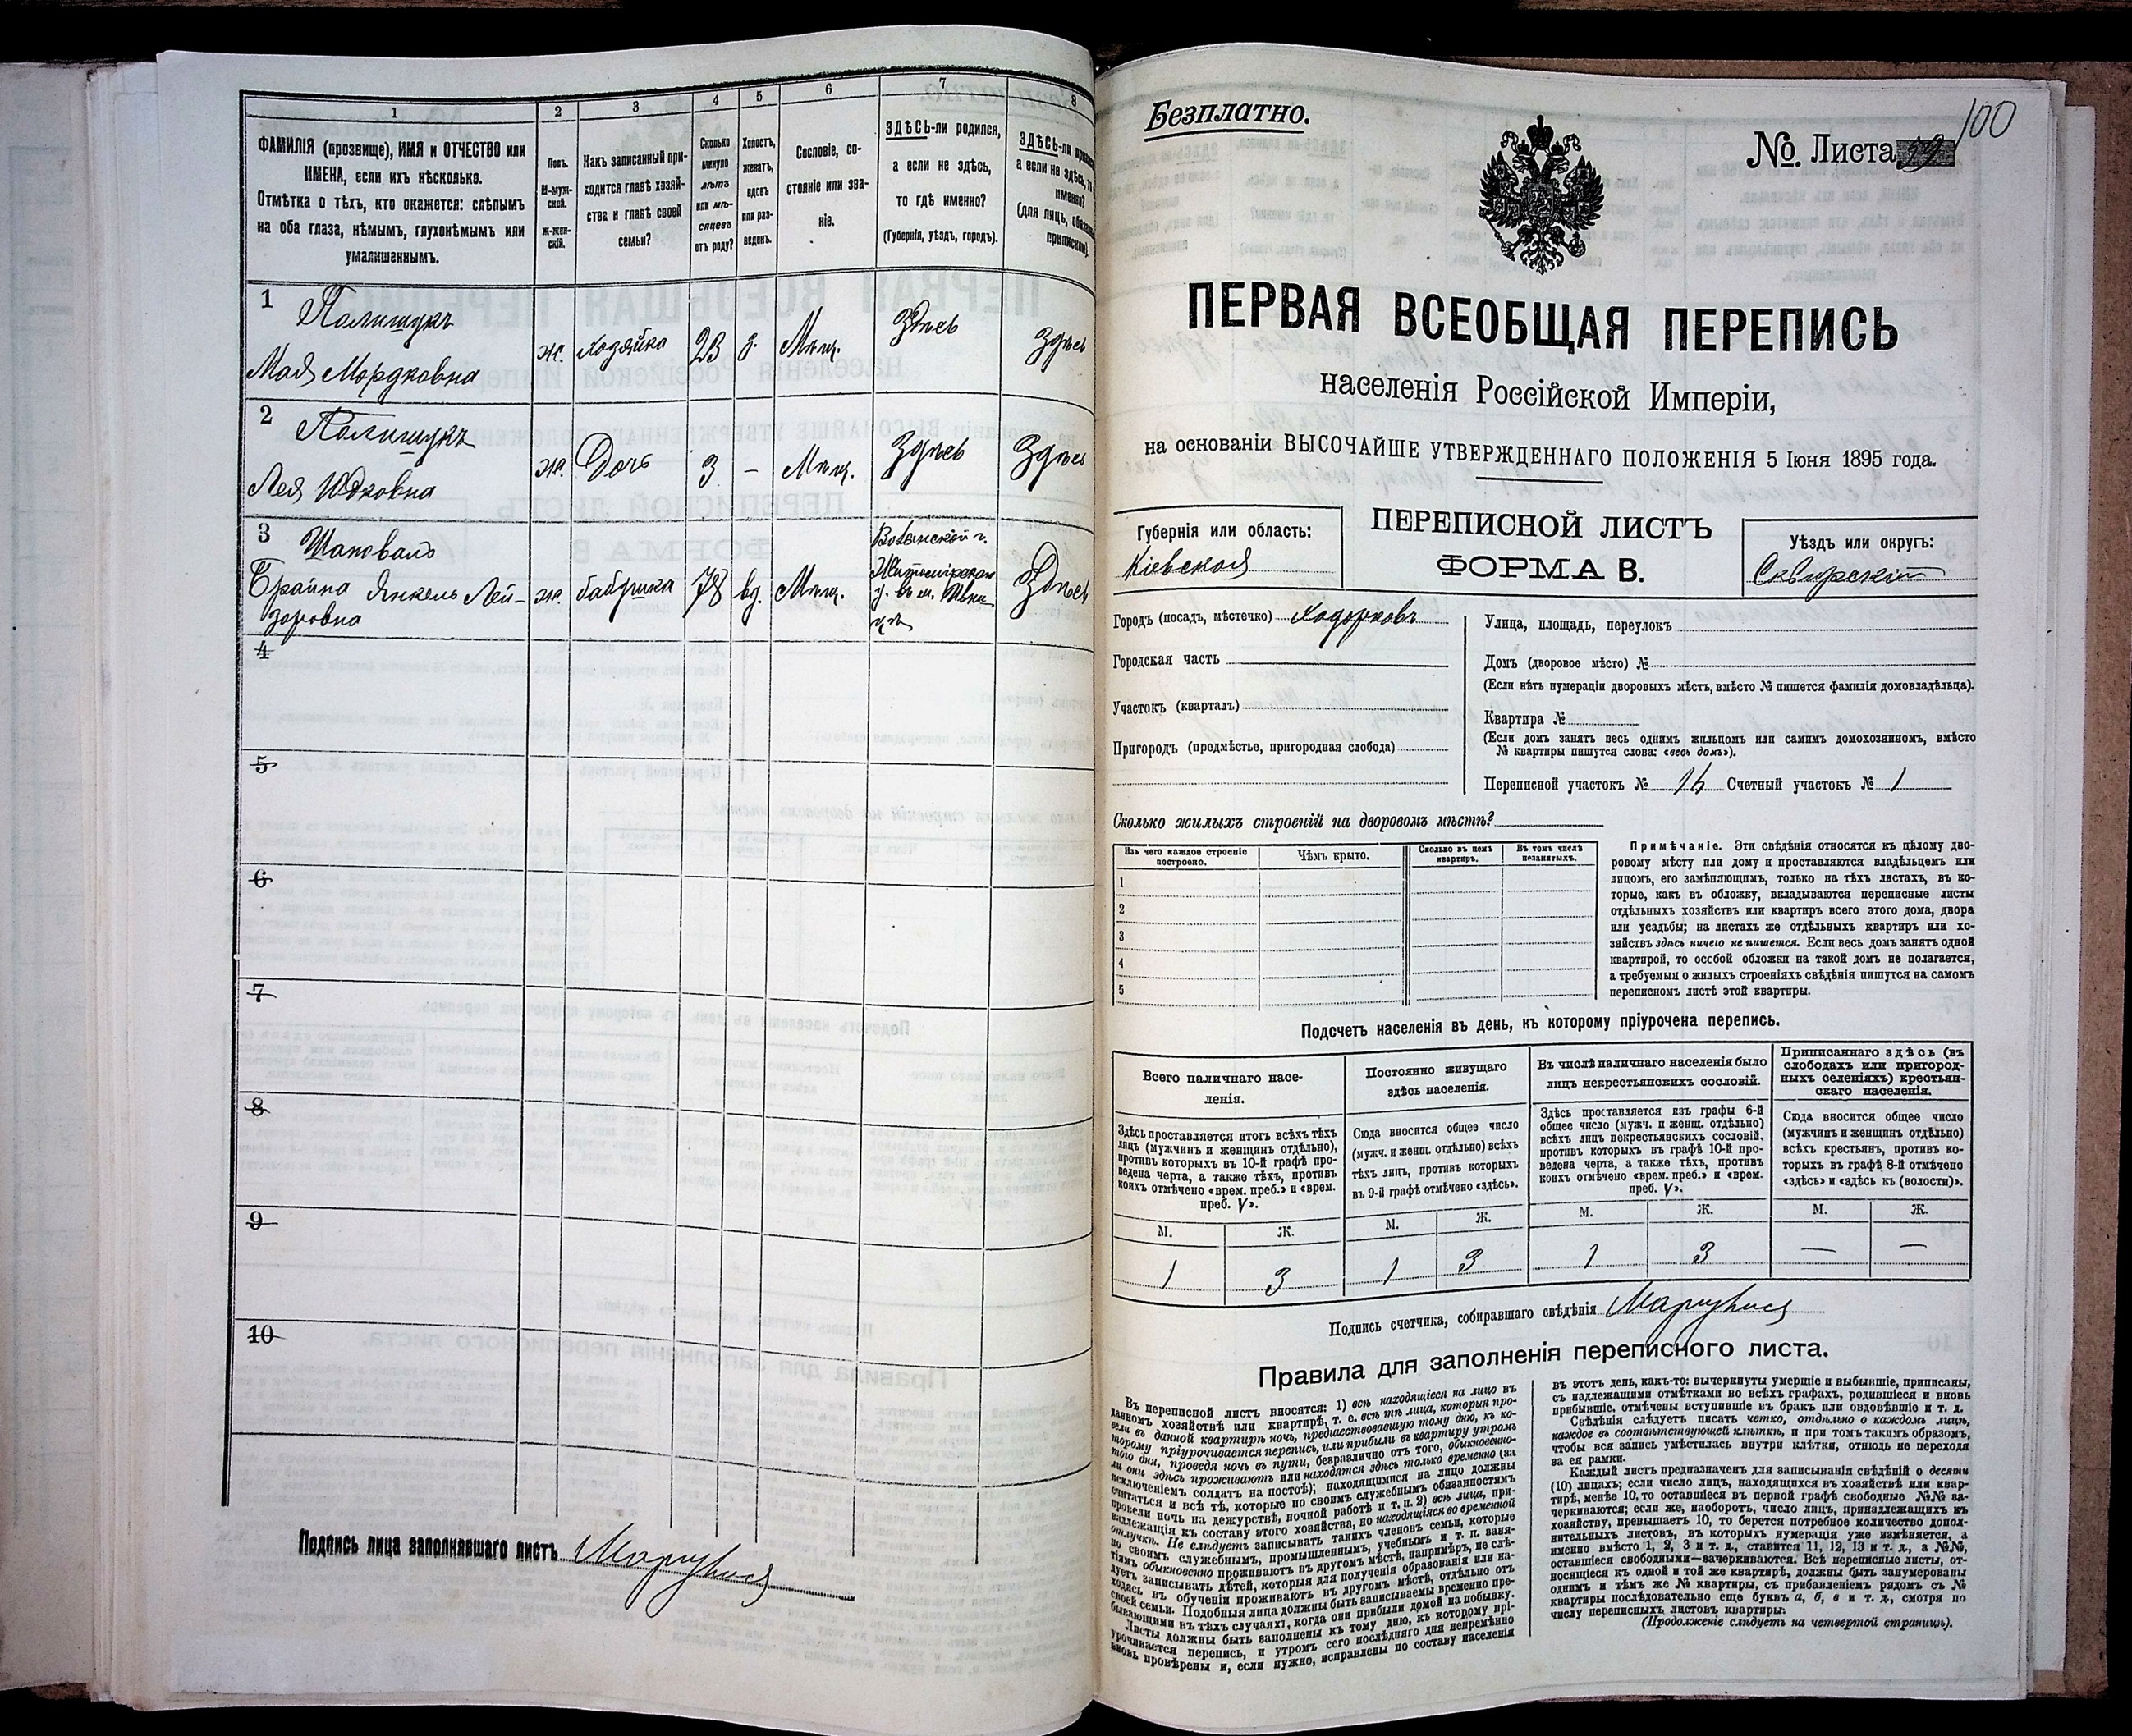 1
2
3
4
5
6
7
8
ФАМИЛІЯ (прозвище), ИМЯ и ОТЧЕСТВО или
ИМЕНА, если ихъ нѣсколько.
Отмѣтка о тѣхъ, кто окажется: слѣпымъ
на оба глаза, нѣмымъ, глухонѣмымъ или
умалишеннымъ.
Полъ.
М-муж-
ской.
Ж-жен-
скій.
Какъ записанный при-
ходится главѣ хозяй-
ства и главѣ своей
семьи?
Сколько
минуло
лѣтъ
или мѣ-
сяцевъ
отъ роду?
Холостъ,
женатъ,
вдовъ
или раз-
веденъ.
Сословіе, со-
стояніе или зва-
ніе.
ЗДѢСЬ-ли родился,
а если не здѣсь,
то гдѣ именно?
(Губернія, уѣздъ, городъ).
ЗДѢСЬ-ли
а если не здѣсь,
именно?
(для лицъ,
припиской).
1 Полищукъ
Мая Мордковна
ж. хозяйка 23 з. Мѣщ. Здѣсь Здѣсь
2 Полищукъ
Лея Юдковна
ж. Дочь 3 – Мѣщ. Здѣсь Здѣсь
3 Шаповалъ
Брайна Янкель Лей-
зоровна
ж. бабушка 78 вд. Мѣщ.
Волынской г.
Житомірскаго
у. въ м.
Здѣсь
4
5
6
7
8
9
10
Подпись лица заполнявшаго листъ
Безплатно.
100
№ Листа 99
ПЕРВАЯ ВСЕОБЩАЯ ПЕРЕПИСЬ
населенія Россійской Имперіи,
на основаніи ВЫСОЧАЙШЕ УТВЕРЖДЕННАГО ПОЛОЖЕНІЯ 5 Іюня 1895 года.
Губернія или область:
Кіевская
ПЕРЕПИСНОЙ ЛИСТЪ
ФОРМА В.
Уѣздъ или округъ:
Сквирскій
Городъ (посадъ, мѣстечко) Ходорковъ
Городская часть
Участокъ (кварталъ)
Пригородъ (предмѣстье, пригородная слобода)
Улица, площадь, переулокъ
Домъ (дворовое мѣсто) №
(Если нѣтъ нумераціи дворовыхъ мѣстъ, вмѣсто № пишется фамилія домовладѣльца).
Квартира №
(Если домъ занятъ весь однимъ жильцомъ или самимъ домохозяиномъ, вмѣсто
№ квартиры пишутся слова: «весь домъ»).
Переписной участокъ № 16 Счетный участокъ № 1
Сколько жилыхъ строеній на дворовомъ мѣстѣ?
Изъ чего каждое строеніе
построено.
Чѣмъ крыто.
Сколько въ немъ
квартиръ.
Въ томъ числѣ
незанятыхъ.
1
2
3
4
5
Примѣчаніе. Эти свѣдѣнія относятся къ цѣлому дво-
ровому мѣсту или дому и проставляются владѣльцемъ или
лицомъ, его замѣняющимъ, только на тѣхъ листахъ, въ ко-
торые, какъ въ обложку, вкладываются переписные листы
отдѣльныхъ хозяйствъ или квартиръ всего этого дома, двора
или усадьбы; на листахъ же отдѣльныхъ квартиръ или хо-
зяйствъ здѣсь ничего не пишется. Если весь домъ занятъ одной
квартирой, то особой обложки на такой домъ не полагается,
а требуемыя о жилыхъ строеніяхъ свѣдѣнія пишутся на самомъ
переписномъ листѣ этой квартиры.
Подсчетъ населенія въ день, къ которому пріурочена перепись.
Всего наличнаго насе-
ленія.
Здѣсь проставляется итогъ всѣхъ тѣхъ
лицъ (мужчинъ и женщинъ отдѣльно),
противъ которыхъ въ 10-й графѣ про-
ведена черта, а также тѣхъ, противъ
коихъ отмѣчено «врем. преб.» и «врем.
преб. V».
Постоянно живущаго
здѣсь населенія.
Сюда вносится общее число
(мужч. и женщ. отдѣльно) всѣхъ
тѣхъ лицъ, противъ которыхъ
въ 9-й графѣ отмѣчено «здѣсь».
Въ числѣ наличнаго населенія было
лицъ некрестьянскихъ сословій.
Здѣсь проставляется изъ графы 6-й
общее число (мужч. и женщ. отдѣльно)
всѣхъ лицъ некрестьянскихъ сословій,
противъ которыхъ въ графѣ 10-й про-
ведена черта, а также тѣхъ, противъ
коихъ отмѣчено «врем. преб.» и «врем.
преб. V».
Приписаннаго здѣсь (въ
слободахъ или пригород-
ныхъ селеніяхъ) крестьян-
скаго населенія.
Сюда вносится общее число
(мужчинъ и женщинъ отдѣльно)
всѣхъ крестьянъ, противъ ко-
торыхъ въ графѣ 8-й отмѣчено
«здѣсь» и «здѣсь къ (волости)».
М. Ж. М. Ж. М. Ж. М. Ж.
1 3 1 3 1 3 — —
Подпись счетчика, собиравшаго свѣдѣнія
Правила для заполненія переписного листа.
Въ переписной листъ вносятся: 1) всѣ находящіеся на лицо въ
данномъ хозяйствѣ или квартирѣ, т. е. всѣ тѣ лица, которыя про-
вели въ данной квартирѣ ночь, предшествовавшую тому дню, къ ко-
торому пріурочивается перепись, или прибыли въ квартиру утромъ
того дня, проведя ночь въ пути, безразлично отъ того, обыкновенно-
ли они здѣсь проживаютъ или находятся здѣсь только временно (за
исключеніемъ солдатъ на постоѣ); находящимися на лицо должны
считаться и всѣ тѣ, которые по своимъ служебнымъ обязанностямъ
провели ночь на дежурствѣ, ночной работѣ и т. п. 2) всѣ лица, при-
надлежащія къ составу этого хозяйства, но находящіяся во временной
отлучкѣ. Не слѣдуетъ записывать такихъ членовъ семьи, которые
по своимъ служебнымъ, промышленнымъ, учебнымъ и т. п. заня-
тіямъ обыкновенно проживаютъ въ другомъ мѣстѣ, напримѣръ, не слѣ-
дуетъ записывать дѣтей, которыя для полученія образованія или на-
ходясь въ обученіи проживаютъ въ другомъ мѣстѣ, отдѣльно отъ
своей семьи. Подобныя лица должны быть записываемы временно пре-
бывающими въ тѣхъ случаяхъ, когда они прибыли домой на побывку.
Листы должны быть заполнены къ тому дню, къ которому прі-
урочивается перепись, и утромъ сего послѣдняго дня непремѣнно
вновь провѣрены и, если нужно, исправлены по составу населенія
въ этотъ день, какъ-то: вычеркнуты умершіе и выбывшіе, приписаны,
съ надлежащими отмѣтками во всѣхъ графахъ, родившіеся и вновь
прибывшіе, отмѣчены вступившіе въ бракъ или овдовѣвшіе и т. д.
Свѣдѣнія слѣдуетъ писать четко, отдѣльно о каждомъ лицѣ,
каждое въ соотвѣтствующей клѣткѣ, и при томъ такимъ образомъ,
чтобы вся запись умѣстилась внутри клѣтки, отнюдь не переходя
за ея рамки.
Каждый листъ предназначенъ для записыванія свѣдѣній о десяти
(10) лицахъ; если число лицъ, находящихся въ хозяйствѣ или квар-
тирѣ, менѣе 10, то оставшіеся въ первой графѣ свободные №№ за-
черкиваются; если же, наоборотъ, число лицъ, принадлежащихъ къ
хозяйству, превышаетъ 10, то берется потребное количество допол-
нительныхъ листовъ, въ которыхъ нумерація уже измѣняется, а
именно вмѣсто 1, 2, 3 и т. д., ставится 11, 12, 13 и т. д., а №№,
оставшіеся свободными—зачеркиваются. Всѣ переписные листы, от-
носящіеся къ одной и той же квартирѣ, должны быть занумерованы
однимъ и тѣмъ же № квартиры, съ прибавленіемъ рядомъ съ №
квартиры послѣдовательно еще буквъ а, б, в и т. д., смотря по
числу переписныхъ листовъ квартиры.
(Продолженіе слѣдуетъ на четвертой страницѣ).